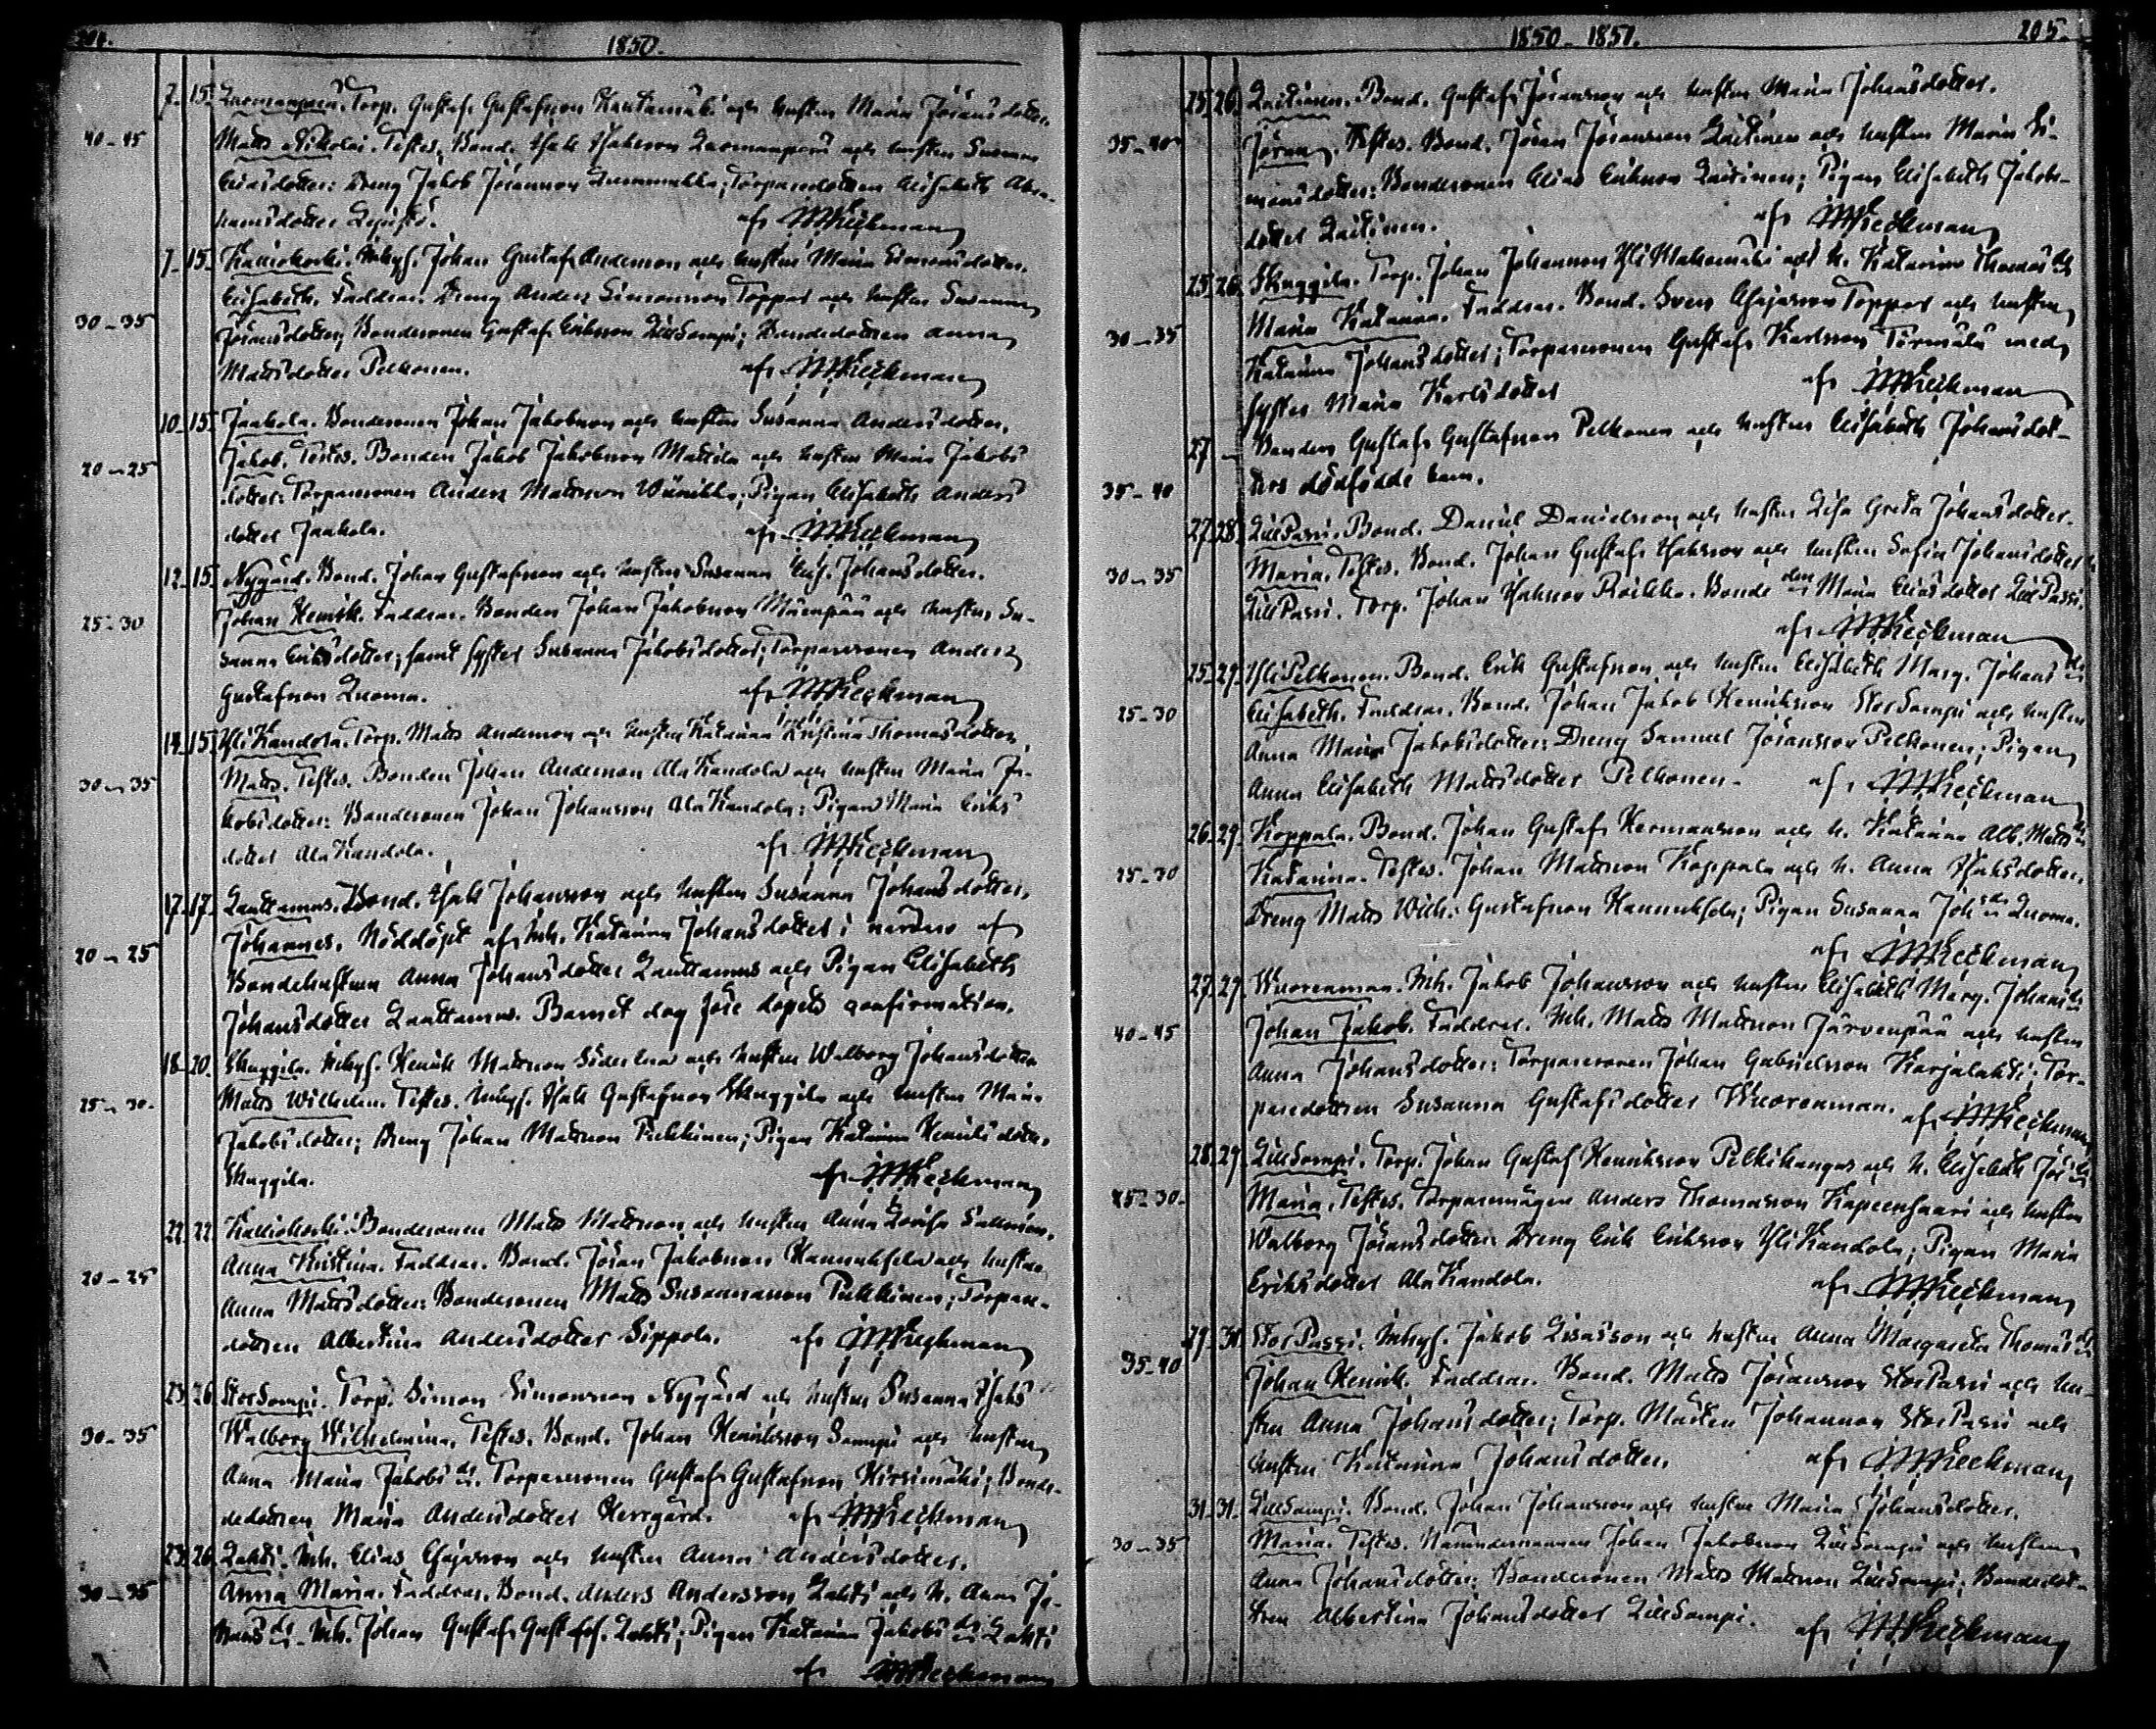 204.
1850.
7. 15. Luomanpää. Torp. Gustaf Gustafsson Kantamäki och hustru Maria Jöransdotter.
40-45 Matts Nikolai. Testes. Bond. Isak Isaksson Luomanpää och hustru Susanna
Eliasdotter: Dreng Jakob Jöransson; Torparedottren Elisabeth Abra-
hamsdotter
af Keckman
7. 15. Kalliokoski. Inhys. Johan Gustaf Andersson och hustru Maria Simonsdotter.
Elisabeth. Faddrar. Dreng Anders Simonsson Toppar och hustru Susanna
30-35 Jöransdotter; Bondesonen Gustaf Eriksson LillSämpi; Bondedottren Anna
Mattsdotter Pelkonen. af Keckman
10. 15. Jaakola. Bondesonen Johan Jakobsson och hustru Susanna Andersdotter.
20-25 Jakob. Testes. Bonden Jakob Jakobsson Mattila och hustru Maria Jakobs
dotter: Torparesonen Anders Mattsson; Pigan Elisabeth Anders
dotter Jaakola. af Keckman
12. 15. Nygård. Bond. Johan Gustafsson och hustru Susanna Elis. Johansdotter.
25-30 Johan Henrik. Faddrar. Bonden Johan Jakobsson Mäenpää och hustru Su-
sanna Eriksdotter; samt syster Susanna Jakobsdotter; Torparesonen Anders
Gustafsson Luoma. af Keckman
14. 15. YliKandola. Torp. Matts Andersson och hustru Katarina Kristina Thomasdotter,
30-35 Matts. Testes. Bonden Johan Andersson AlaKandola och hustru Maria Ja-
kobsdotter: Bondesonen Johan Johansson AlaKandola: Pigan Maria Eriks
dotter AlaKandola. af Keckman
17. 17. Lauttamus. Bond. Isak Johansson och hustru Susanna Johansdotter.
20-25 Johannes. Nöddöpt af Inh. Katarina Johansdotter i närvaro af
Bondehustrun Anna Johansdotter Lauttamus och Pigan Elisabeth
Johansdotter Lauttamus. Barnet dog före dopets confirmation.
18. 20. Skuggila. Inhys. Henrik Mattsson Söderlund och hustru Walborg Johansdotter
25-30. Matts Wilhelm. Testes. Inhys. Isak Gustafsson Skuggila och hustru Maria
Jakobsdotter; Dreng Johan Mattsson Pirkkinen; Pigan Katarina Henriksdotter
Skuggila. af Keckman
22. 22. Kalliokoski. Bondesonen Matts Mattsson och hustru Anna Lovisa
20-25 Anna Kristina. Faddrar. Bond. Jöran Jakobsson Hannuksela och hustru
Anna Mattsdotter: Bondesonen Matts Susannasson Pirkkinen; Torpare-
dottren Albertina Andersdotter Sippola. af Keckman
23. 26. StorSämpi. Torp. Simon Simonsson Nygård och hustru Susanna Isaks
30-35 Walborg Wilhelmina. Testes. Bond. Johan Henriksson Sämpi och hustru
Anna Maria Jakobs dr. Torparesonen Gustaf Gustafsson Hirsimäki; Bon-
dedottren Maria Andersdotter Herrgård. af Keckman
23. 26. Lahti. Inh. Elias Esajasson och hustru Anna Andersdotter.
30-35 Anna Maria. Faddrar. Bond. Anders Andersson Lahti och h. Anna Jo-
hans dr. Inh. Johan Gustaf Gustafs. Lahti; Pigan Katarina Jakobs dr Lahti
af Keckman
1850-1851.
205.
25. 26. Laitinen. Bond. Gustaf Jöransson och hustru Maria Johansdotter.
35-40 Jöran. Testes. Bond. Jöran Jöransson Laitinen och hustru Maria Si-
monsdotter: Bondesonen Elias Eriksson Laitinen; Pigan Elisabeth Jakobs-
dotter Laitinen. af Keckman
25. 26. Skuggila. Torp. Johan Johansson Yli och h. Katarina Thomas dr
30-35 Maria Katarina. Faddrar. Bond. Sven Esajasson Toppar och hustru
Katarina Johansdotter; Torparesonen Gustaf Karlsson Törmälä med
syster Maria Karlsdotter af Keckman
27 – Bonden Gustaf Gustafsson Pelkonen och hustru Elisabeth Johansdot-
35-40 ters dödfödde barn.
27. 28. LillPassi. Bond. Daniel Danielsson och hustru Lisa Greta Johansdotter.
30-35 Maria. Testes. Bond. Johan Gustaf Isaksson och hustru Sofia Johansdotter
LillPassi. Torp. Johan Isaksson. Bonde drn Maria Eliasdotter LillPassi.
af Keckman
25. 29. YliPelkonen. Bond. Erik Gustafsson och hustru Elisabeth Marg. Johans dr
25-30 Elisabeth. Faddrar. Bond. Johan Jakob Henriksson StorSämpi och hustru
Anna Maria Jakobsdotter: Dreng Samuel Jöransson Pelkonen; Pigan
Anna Elisabeth Mattsdotter Pelkonen. af Keckman
26. 29. Koppala. Bond. Johan Gustaf Hermansson och h. Katarina Alb. Matts dr
25-30 Katarina. Testes. Johan Mattsson Koppala och h. Anna Isaksdotter.
Dreng Matts Wilh. Gustafsson Hannuksela; Pigan Susanna Joh dr Luoma.
af Keckman
27. 29. Wuorenmaa. Inh. Jakob Johansson och hustru Elisabeth Marg. Johans dr
40-45 Johan Jakob. Faddrar. Inh. Matts Mattsson Järvenpää och hustru
Anna Johansdotter: Torparesonen Johan Gabrielsson Karjalahti; Tor-
paredottren Susanna Gustafsdotter Wuorenmaa. af Keckman
28. 29. LillSämpi. Torp. Johan Gustaf Henriksson Pelkikangas och h. Elisabeth Jör dr
25-30. Maria. Testes. Torparemågen Anders Thomasson och hustru
Walborg Jöransdotter: Dreng Erik Eriksson YliKandola; Pigan Maria
Eriksdotter AlaKandola. af Keckman
29. 31. StorPassi. Inhys. Jakob och hustru Anna Margareta Thomas dr
35-40 Johan Henrik. Faddrar. Bond. Matts Jöransson StorPassi och hu-
stru Anna Johansdotter; Torp. Mårten Johansson StorPassi och
hustru Katarina Johansdotter. af Keckman
31. 31. LillSämpi. Bond. Johan Johansson och hustru Maria Johansdotter.
30-35 Maria. Testes. Nämndemannen Johan Jakobsson LillSämpi och hustru
Anna Johansdotter: Bondesonen Matts Mattsson LillSämpi; Bondedot-
tren Albertina Johansdotter LillSämpi. af Keckman